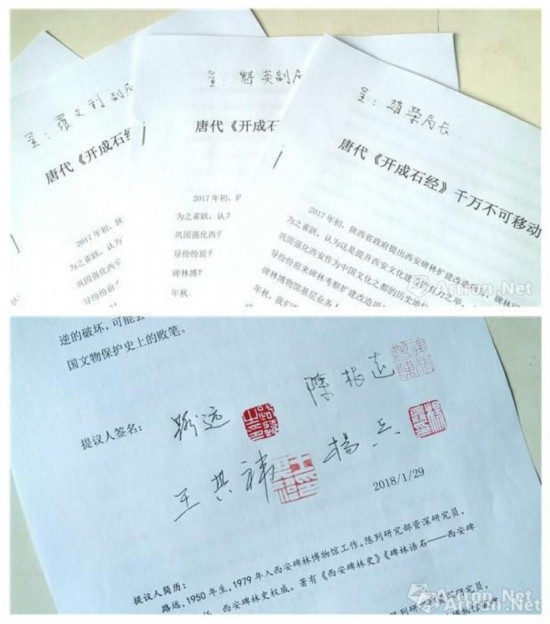 呈：羅文利副局
唐代《开成石经
2017年初，陕
为之雀跃，认为
巩固强化西
导纷纷前
碑林博
年秋
呈：魁英副局
唐代《开成石经》
2017年初，
为之雀跃，认
巩固强化西
导纷纷前
碑林博
年秋，
呈： 荣局长
唐代《开成石经》千万不可移动
2017年初，陕西省政府提出西安碑林扩建改造
为之雀跃，认为这是提升西安文化
巩固强化西安作为中国文化之都的历史地
导纷纷前来碑林考察扩建改造
碑林博物馆基层业务
年秋，我们
Artron.Net
逆的破坏，可能会
国文物保护史上的败笔。
提议人签名：
路远 陈根远
王其祎 杨兵
2018/1/29
提议人简历：
路远，1950年生，1979年入西安碑林博物馆工作。陈列研究部资深研究员，
西安碑林史权威。著有《西安碑林史》《碑林语石——西安碑
Artron.Net